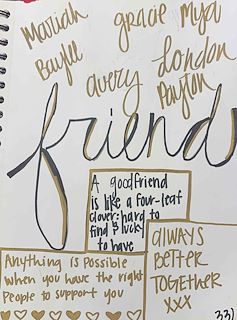 Mariah
gracie Mya
Baylee
avery
London
Payton
friend
A good friend
is like a four-leaf
clover: hard to
find & lucky
to have
Anything is possible
when you have the right
People to support you
always
Better
Together
xxx
33)